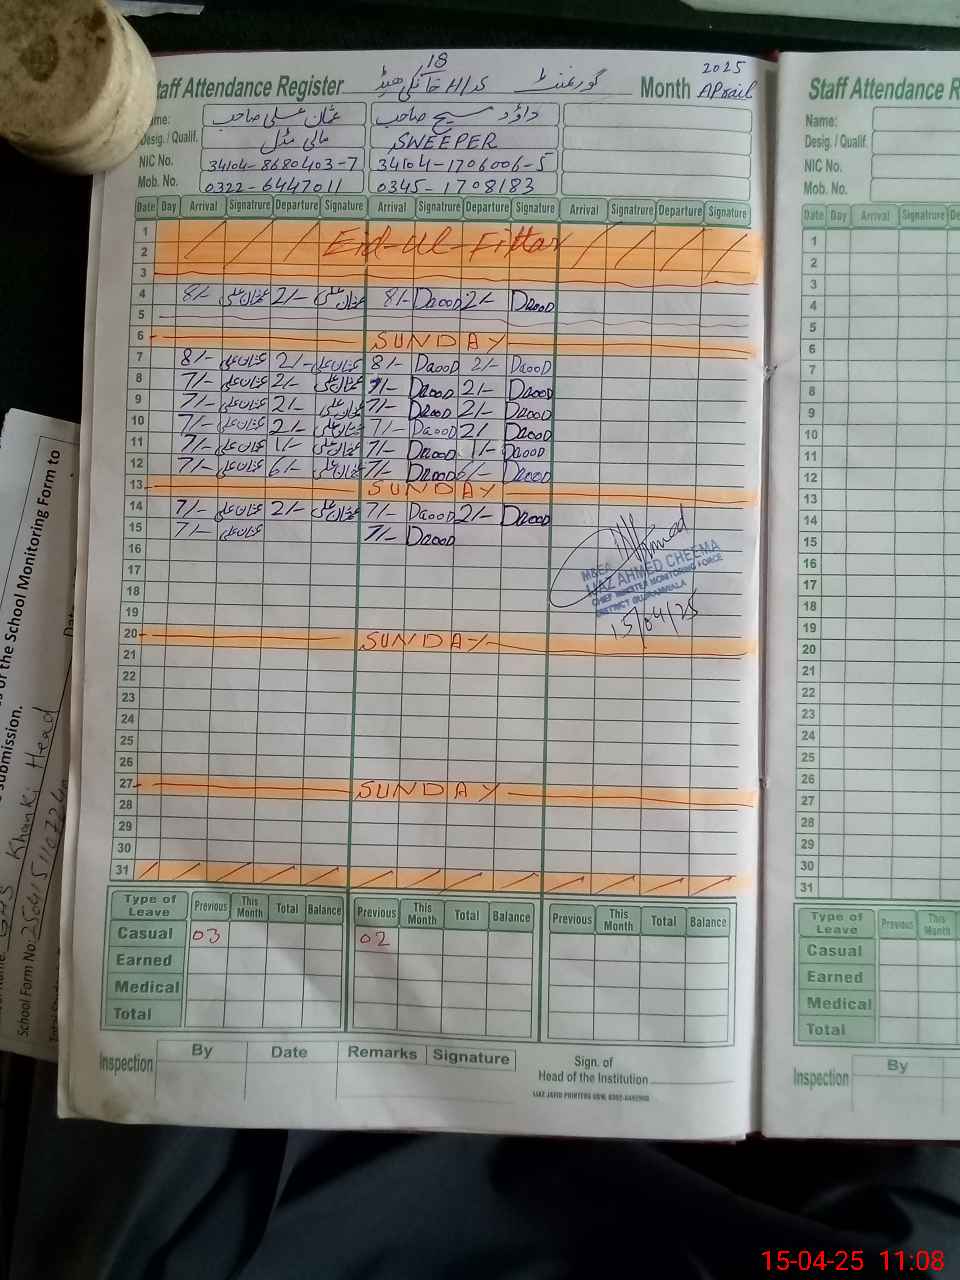 Staff Attendance Register گورنمنٹ H/S خانکی ہیڈ 18 Month APrail 2025
Name: عثمان علی صاحب داؤد مسیح صاحب
Desig. / Qualif. مالی مڈل SWEEPER
NIC No. 34104-8680403-7 34104-1706006-5
Mob. No. 0322-6447011 0345-1708183
Date Day Arrival Signatrure Departure Signature Arrival Signatrure Departure Signature Arrival Signatrure Departure Signature
1
2 Eid-ul-Fittar
3
4 8/- عثمان علی 2/- عثمان علی 8/- Daood 2/- Daood
5
6 SUNDAY
7 8/- عثمان علی 2/- عثمان علی 8/- Daood 2/- Daood
8 7/- عثمان علی 2/- عثمان علی 7/- Daood 2/- Daood
9 7/- عثمان علی 2/- عثمان علی 7/- Daood 2/- Daood
10 7/- عثمان علی 2/- عثمان علی 7/- Daood 2/ Daood
11 7/- عثمان علی 1/- عثمان علی 7/- Daood 1/- Daood
12 7/- عثمان علی 6/- عثمان علی 7/- Daood 6/- Daood
13 SUNDAY
14 7/- عثمان علی 2/- عثمان علی 7/- Daood 2/- Daood
15 7/- عثمان علی 7/- Daood
16
17
18
19
20 SUNDAY
21
22
23
24
25
26
27 SUNDAY
28
29
30
31
M&EA
IJAZ AHMED CHEEMA
CHIEF MINISTER MONITORING FORCE
DISTRICT GUJRANWALA
15/04/25
Type of Leave Previous This Month Total Balance Previous This Month Total Balance Previous This Month Total Balance
Casual 03 02
Earned
Medical
Total
Inspection By Date Remarks Signature
Sign. of
Head of the Institution
Staff Attendance R
Name:
Desig. / Qualif.
NIC No.
Mob. No.
Date Day Arrival Signatrure De
1
2
3
4
5
6
7
8
9
10
11
12
13
14
15
16
17
18
19
20
21
22
23
24
25
26
27
28
29
30
31
Type of Leave Previous This Month
Casual
Earned
Medical
Total
Inspection By
of the School Monitoring Form to
submission.
Khanki Head
School Form No:
15-04-25 11:08